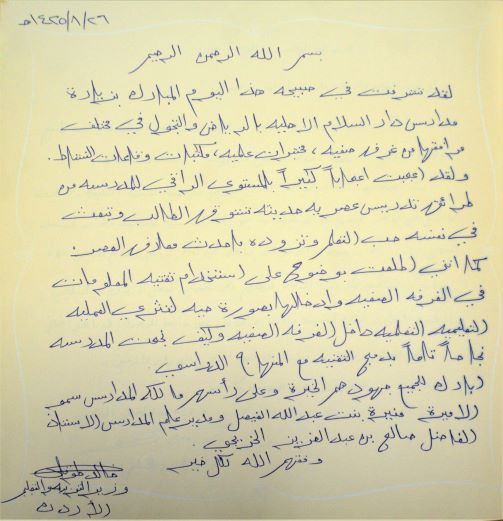 ١٤٢٥/٨/٢٦هـ
بسم الله الرحمن الرحيم
لقد تشرفت في صبيحة هذا اليوم المبارك بزيارة
مدارس دار السلام الاهلية بالرياض والتجول في مختلف
مرافقها من غرف صفية، مختبرات علمية، مكتبات وقاعات النشاط.
ولقد اعجبت اعجاباً كبيراً بالمستوى الراقي للمدرسة من
طرائق تدريس عصرية حديثة تشوق الطالب وتبعث
في نفسه حب التعلم وتزوده باحدث معارف العصر.
كما انني اطلعت بوضوح على استخدام تقنية المعلومات
في الغرفة الصفية وادخالها بصورة حية لتثري العملية
التعليمية التعلمية داخل الغرفة الصفية وكيف نجحت المدرسة
نجاحاً تاماً بدمج التقنية مع المنهاج الدراسي.
ابارك للجميع جهودهم الخيرة وعلى رأسهم مالكة المدارس سمو
الاميرة منيرة بنت عبدالله الفيصل ومدير عام المدارس الاستاذ
الفاضل صالح بن عبدالعزيز الخريجي.
وفقهم الله لكل خير
وزير التربية والتعليم
الأردن